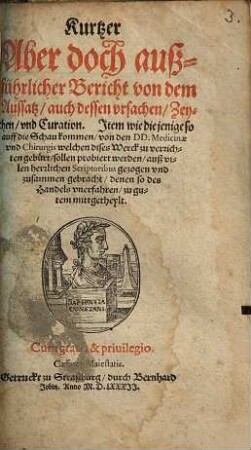 3.
Kurtzer
Aber doch auß-
führlicher Bericht von dem
Aussatz / auch dessen vrsachen / Zey-
chen / vnd Curation. Item wie die jenige so
auff die Schau kommen / von den DD. Medicinæ
vnd Chirurgis welchen dises Werck zu verrich-
ten gebürt / sollen probiert werden / auß vi-
len herrlichen Scriptoribus gezogen vnd
zusammen gebracht / denen so des
Handels vnerfahren / zu gu-
tem mittgetheylt.
Cum gratia & priuilegio.
Cæsareæ Maiestatis.
Getruckt zu Straßburg / durch Bernhard
Jobin. Anno M.D.LXXXII.